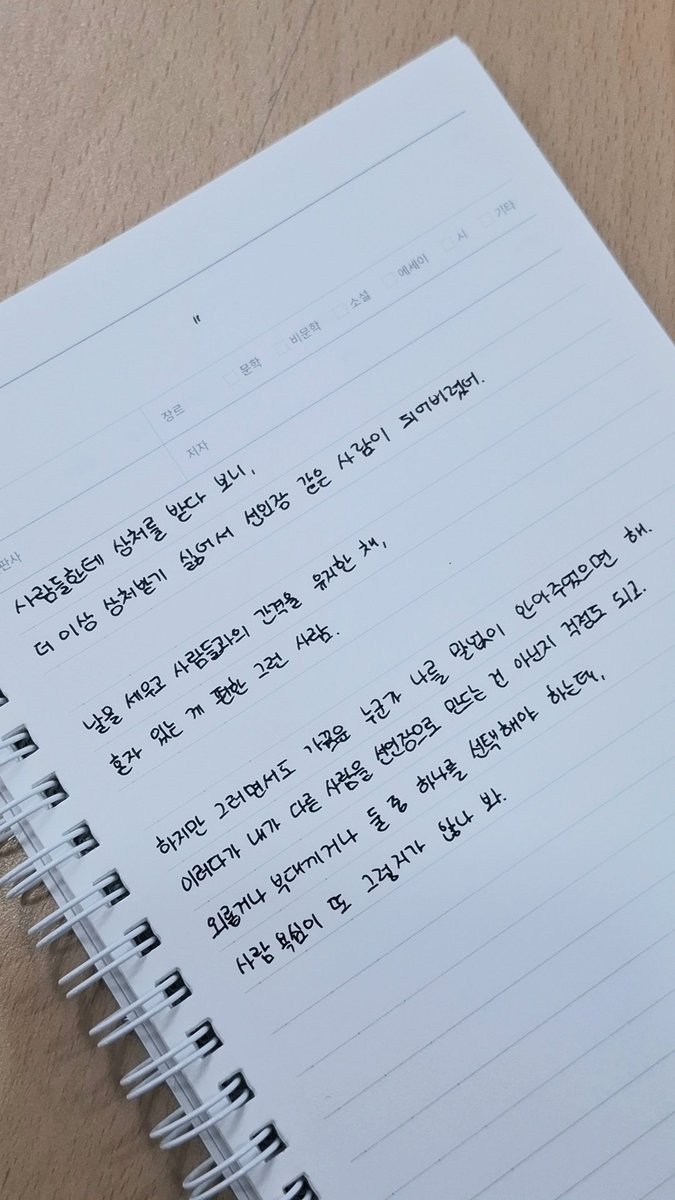 "
장르 문학 비문학 소설 에세이 시 기타
저자
판사
사람들한테 상처를 받다 보니,
더 이상 상처받기 싫어서 선인장 같은 사람이 되어버렸어.
날을 세우고 사람들과의 간격을 유지한 채,
혼자 있는 게 편한 그런 사람.
하지만 그러면서도 가끔은 누군가 나를 말없이 안아주었으면 해.
이러다가 내가 다른 사람을 선인장으로 만드는 건 아닌지 걱정도 되고.
외롭거나 부대끼거나 둘 중 하나를 선택해야 하는데,
사람 욕심이 또 그렇지가 않나 봐.